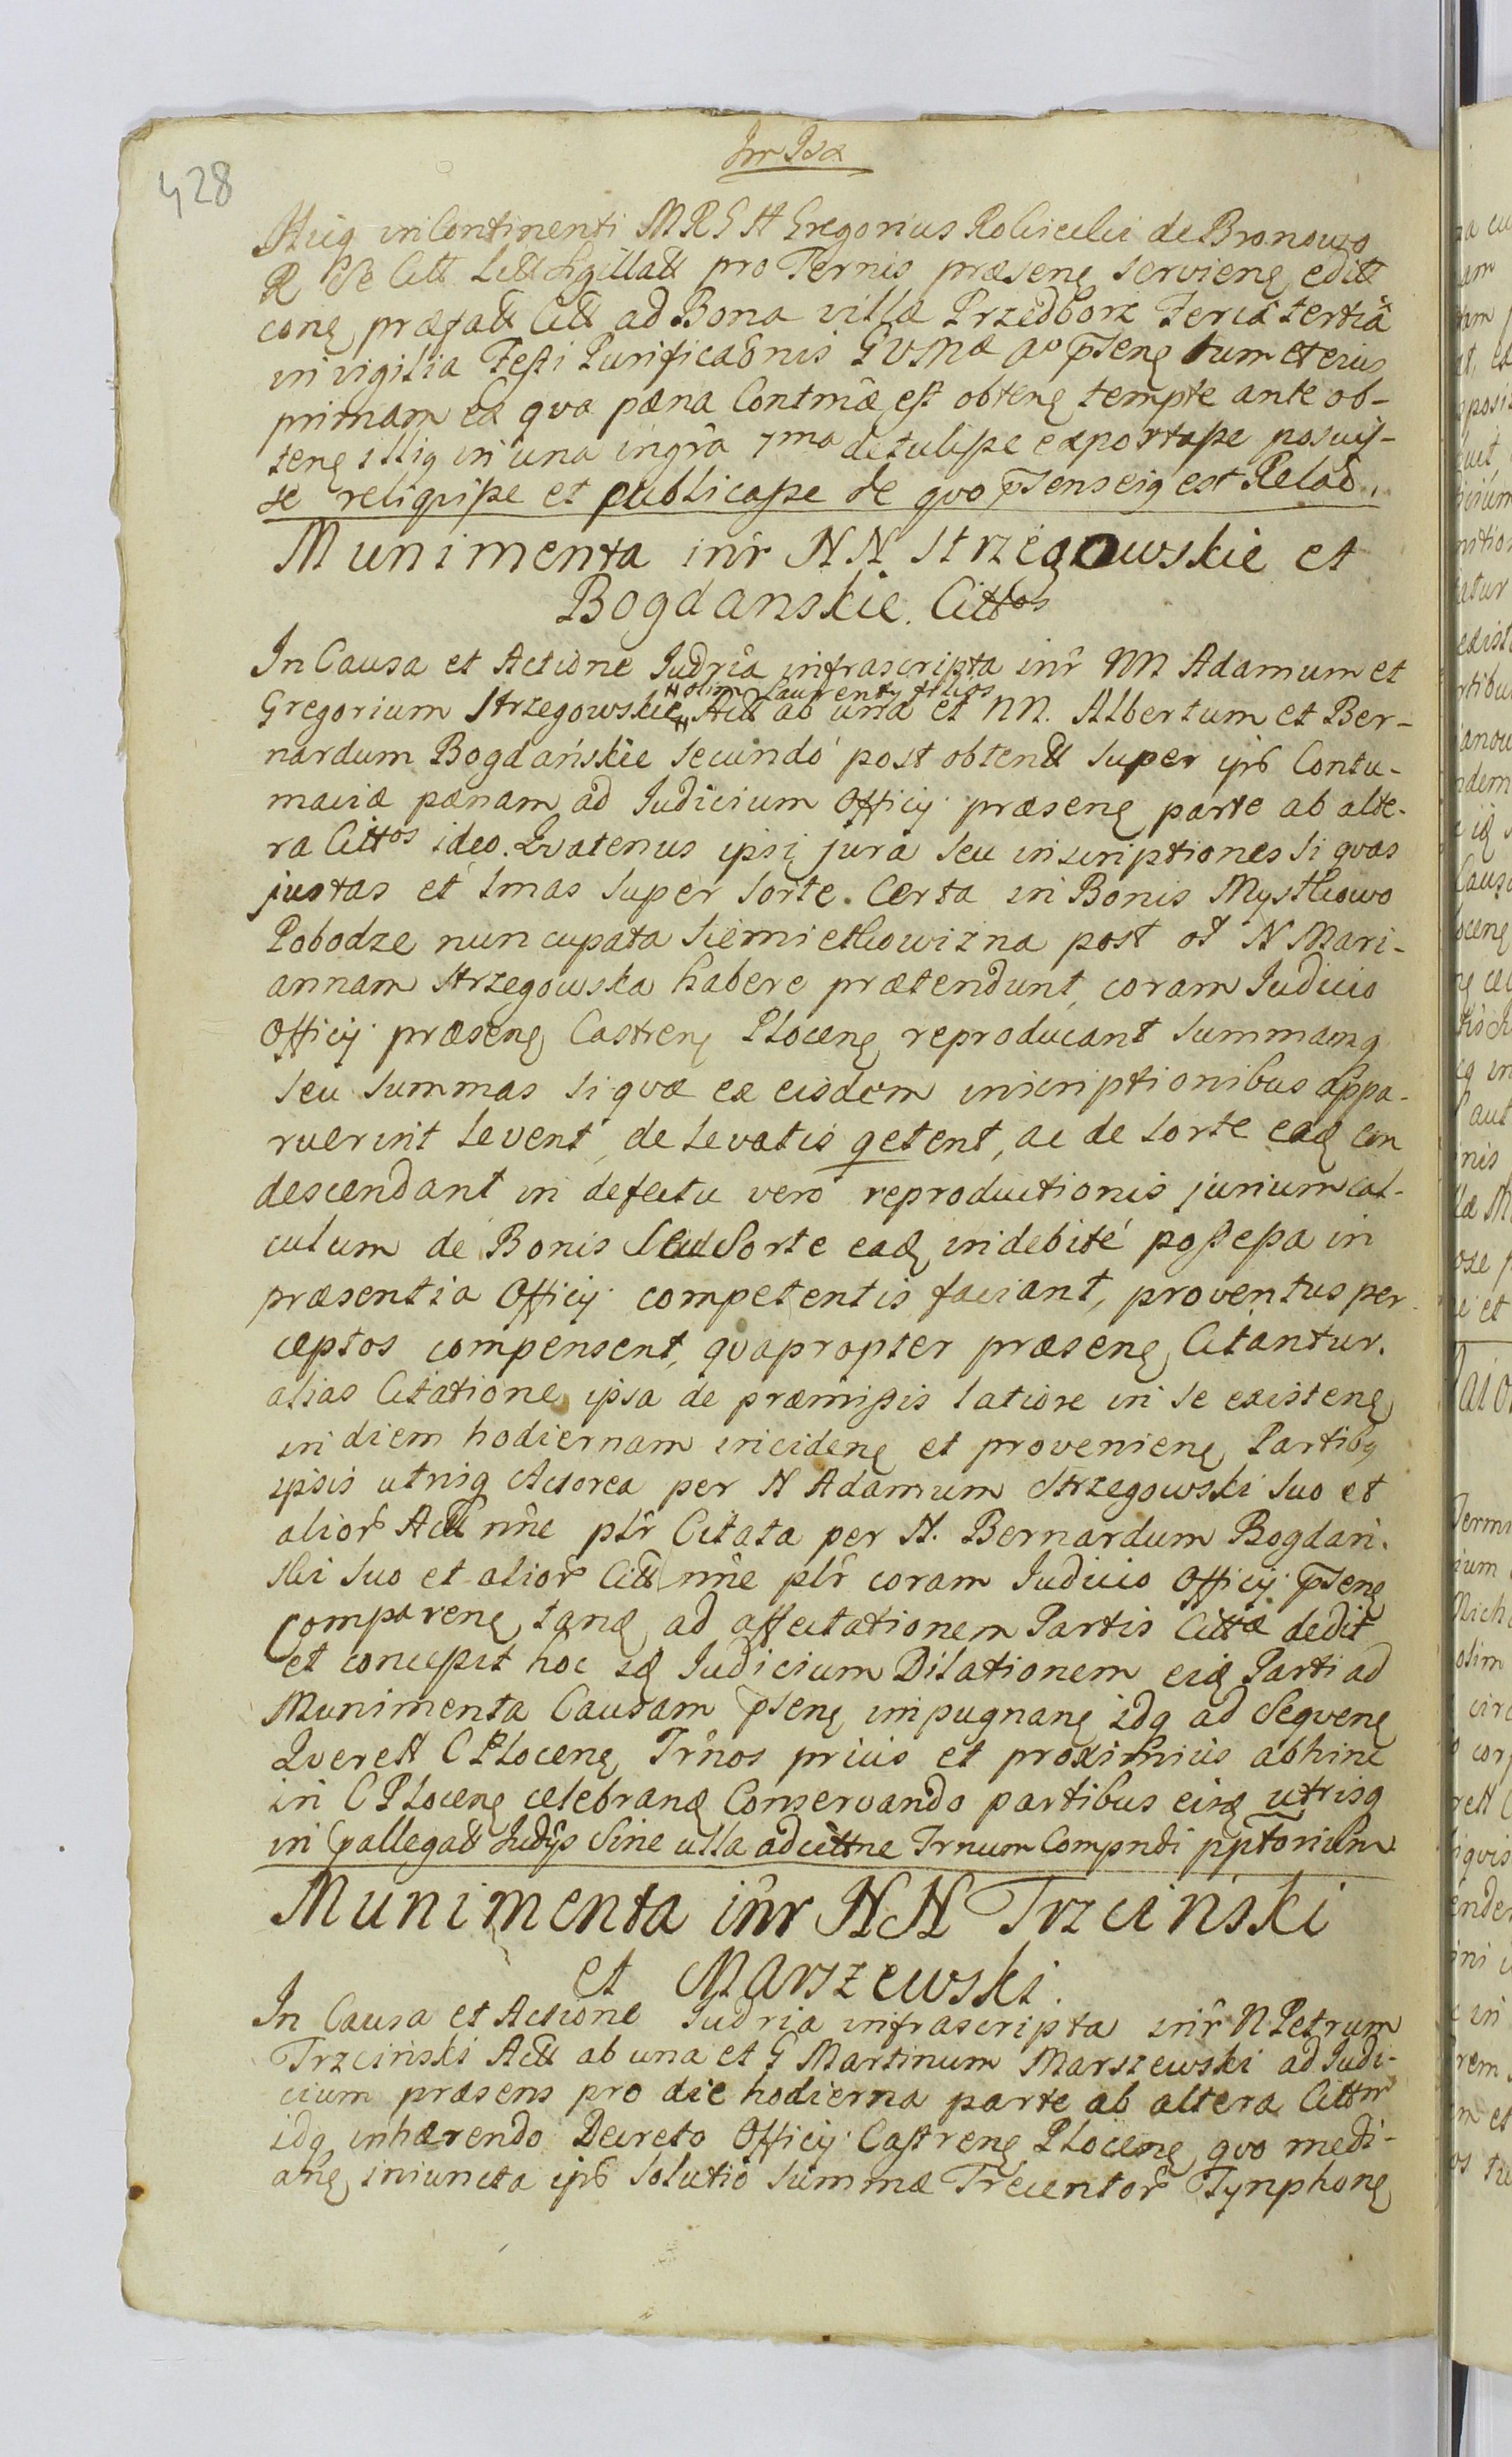 428
Huiq in Continenti MRGH Gregorius Robicelei de Bronowo
R Se Citt Litt Sigillatt pro Ternis præsenę servienę editt
conę præfatt Citt ad Bona villæ Przedborz Feriâ tertiâ
in vigilia Festi Purificaōnis GVMæ aō p̄senę tum et eius
primam ex qva pæna Contmæ est obtenę tempte ante ob-
tenę illiq in una ingr̃a 7ma detulisse exportasse posuis-
se reliqvisse et publicasse de qvo p̄sens eiq est Relaō.
Munimenta inr̃ NN Strzegowskie et
Bogdanskie. Cittos
In Causa et Actione Judria infrascripta inr̃ NN Adamum et
olim Laurenty filios
Gregorium Strzegowskie Actt ab una et NN. Albertum et Ber-
nardum Bogdańskie secundó post obtentt super ipō Contu-
maciæ pænam ad Judicium Officij præsenę parte ab alte-
ra Cittos ideo. Qvatenus ipsi jura seu inscriptiones si qvas
justas et smas super sorte. Certa in Bonis Mystkowo
Pobodze nuncupata Siemietkowizna post ol N Mari-
annam Strzegowska habere prætendunt, coram Judicio
Officij præsenę Castrenę Plocenę reproducant summamq
seu summas si qvæ ex eisdem inscriptionibus appa-
ruerint levent, de levatis qetent, ac de sorte eadę con
descendant in defectu vero reproductionis jurium cal-
culum de Bonis seu Sorte eadę indebité possessa in
præsentia Officij competentis faciant, proventus per-
ceptos compensent, qvapropter præsenę Citantur.
alias Citatione ipsa de præmissis latiore in se existenę
in diem hodiernam incidenę et provenienę Partibq
ipsis utrisq Actorea per N Adamum Strzegowski suo et
alior̃ Actt nñe pl̃r Citata per N. Bernardum Bogdań-
ski suo et alior̃ Citt nñe pl̃r coram Judicio Officij p̄senę
Comparenę tanę ad affectationem Partis Cittæ dedit
et concessit hoc idę Judicium Dilationem eidę Parti ad
Munimenta Causam p̄senę impugnanę idq ad Seqvenę
Qverett C Plocenę Tr̃nos prius et proximius abhinc
in C Plocenę celebrandę Conservando partibus eisdę utrisq
in p̄allegatt Judijs Sine ulla adcittne Trnum Compndi pptorium
Munimenta inr̃ NN Trzciński
et Marszewski.
In Causa et Actione Judria infrascripta inr̃ N Petrum
Trzciński Actt ab una et G Martinum Marszewski ad Judi-
cium præsens pro die hodierna parte ab altera Cittm
idq inhærendo Decreto Officij Castrenę Plocenę qvo medi-
anę iniuncta ipō solutio summæ Trecentor̃ Tynphonę